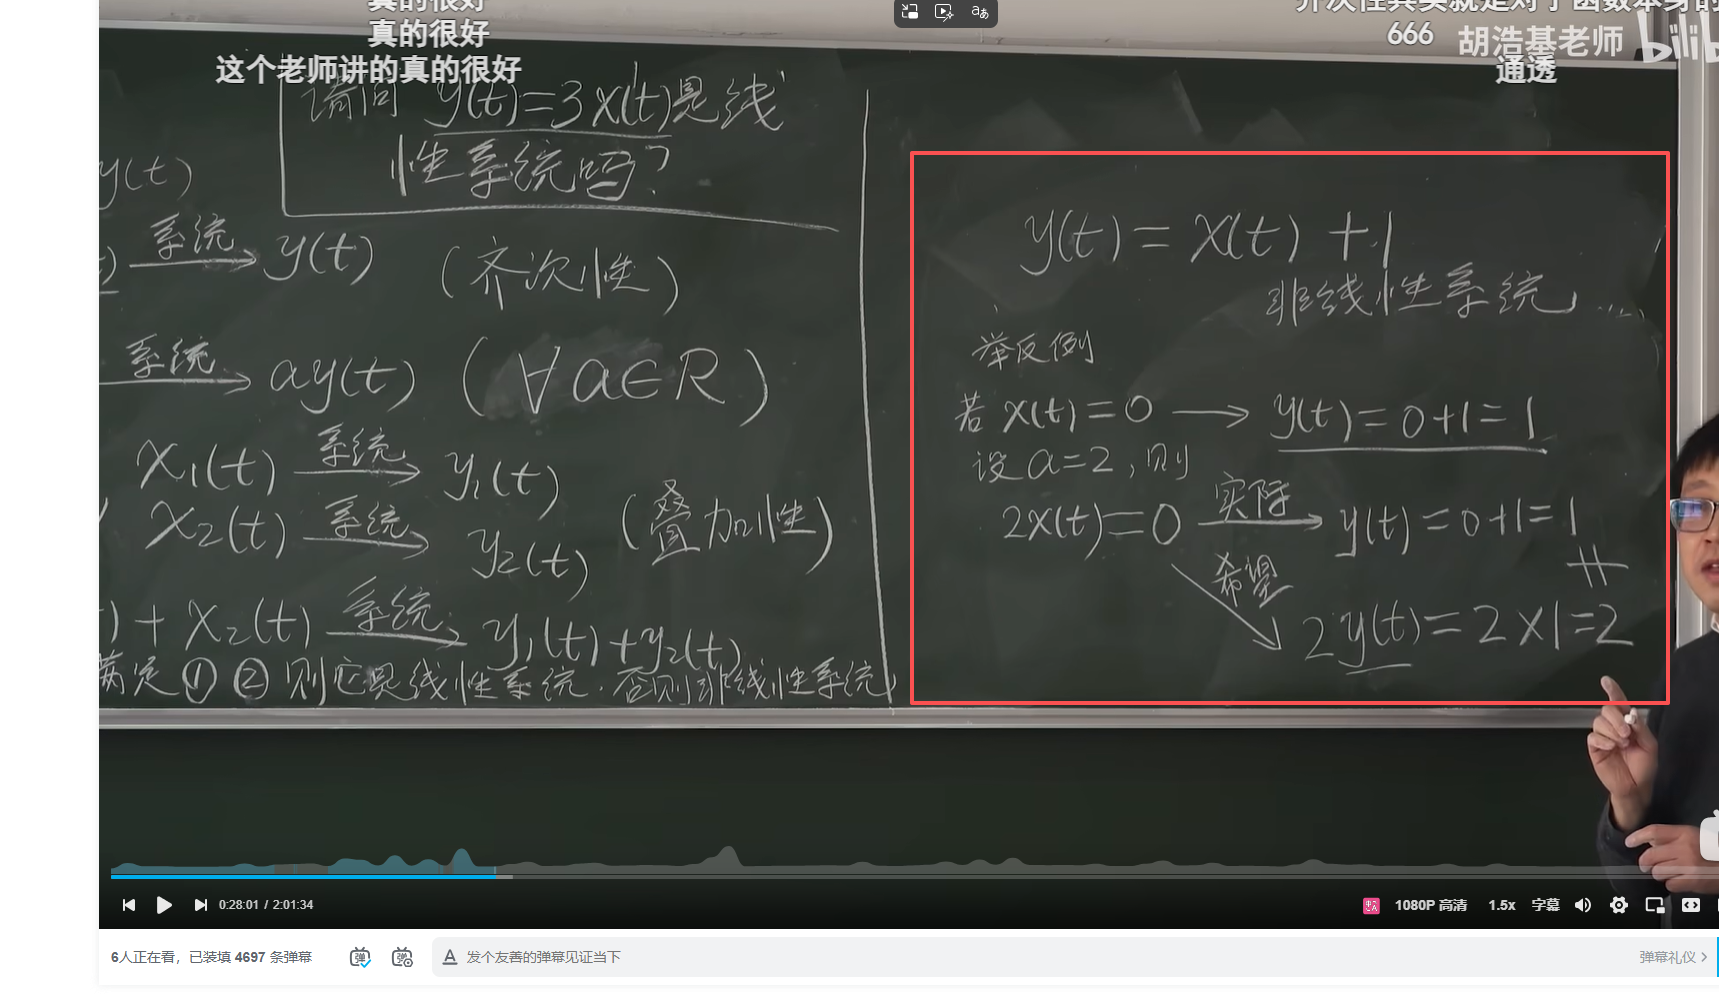 真的很好
真的很好
这个老师讲的真的很好
齐次性其实就是对于函数本身的
666
胡浩基老师
bilib
通透
请问 y(t)=3x(t)是线
性系统吗?
y(t)
系统 y(t) (齐次性)
系统 ay(t) (∀a∈R)
x₁(t) 系统 y₁(t)
x₂(t) 系统 y₂(t) (叠加性)
) + x₂(t) 系统 y₁(t)+y₂(t)
满足 ① ② 则它是线性系统.否则非线性系统
y(t) = x(t) +1
非线性系统...
举反例
若 x(t)=0 → y(t)=0+1=1
设 a=2,则
2x(t)=0 实际 → y(t)=0+1=1
希望
2y(t)=2×1=2
0:28:01 / 2:01:34
1080P 高清 1.5x 字幕
6人正在看,已装填 4697 条弹幕
弹
弹
A 发个友善的弹幕见证当下
弹幕礼仪 >